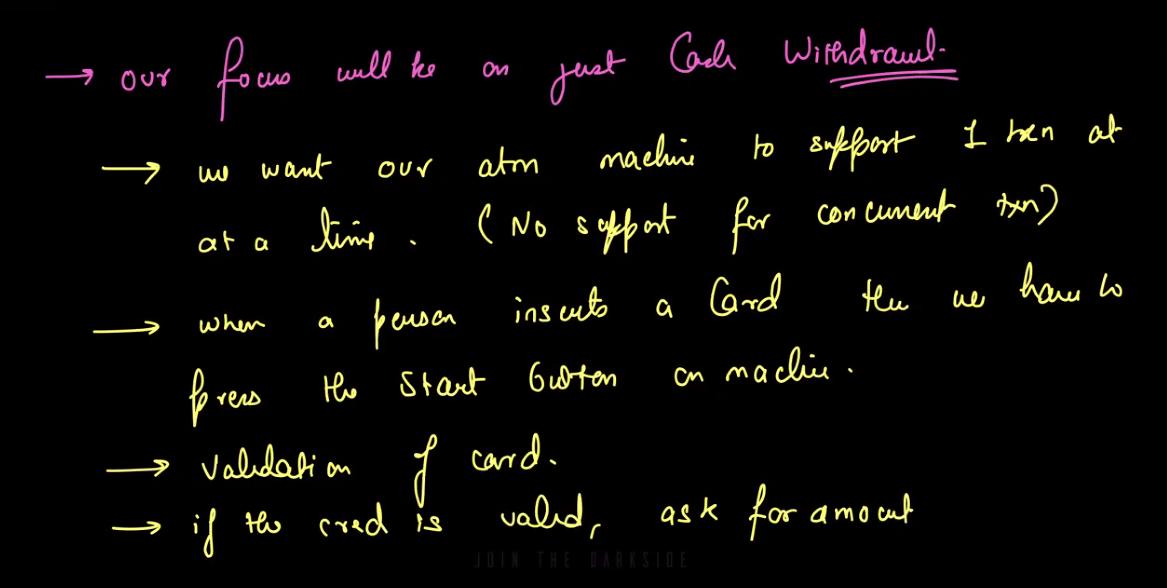 → our focus will be on just Cash Withdrawl.
→ we want our atm machine to support 1 txn at
at a time. (No support for concurrent txn)
→ when a person inserts a Card then we have to
press the Start button on machine.
→ validation of card.
→ if the cred is valid, ask for amount
JOIN THE DARKSIDE